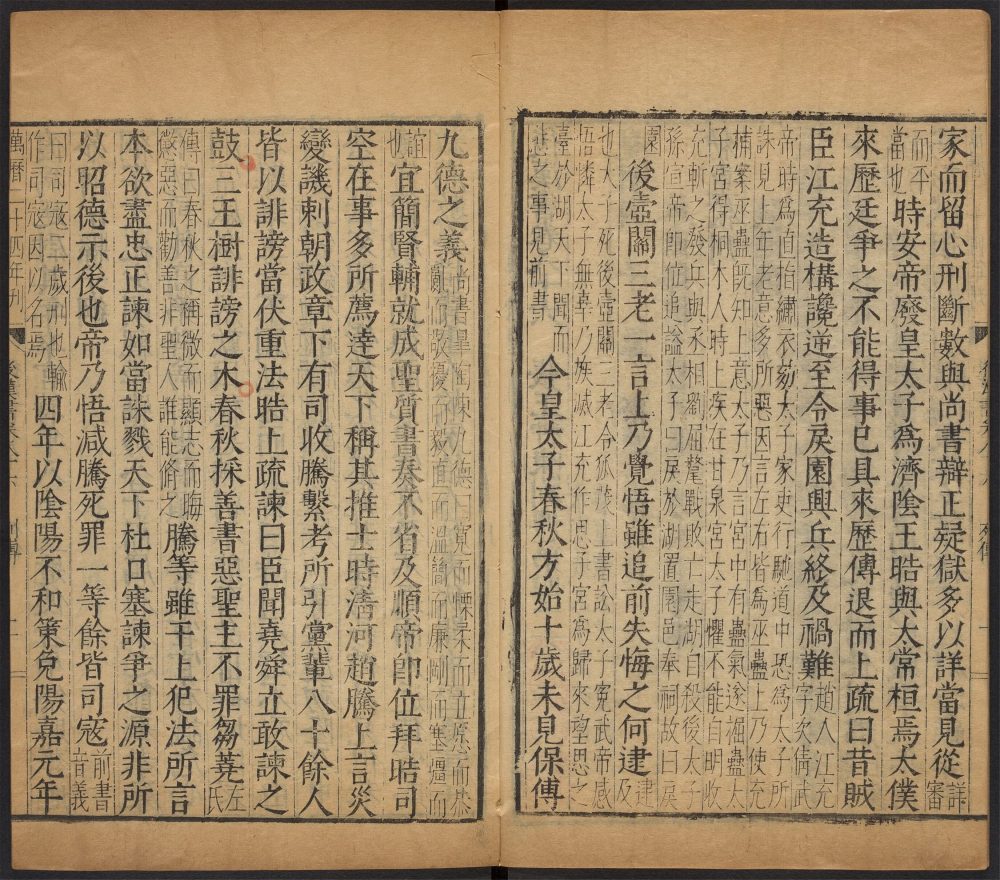 家而留心刑斷數與尚書辯正疑獄多以詳當見從詳審
而平當也時安帝廢皇太子爲濟陰王晧與太常桓焉太僕
來歷廷爭之不能得事已具來歷傳退而上疏曰昔賊
臣江充造構讒逆至令戾園興兵終及禍難趙人江充字次倩武
帝時爲直指繡衣劾太子家吏行馳道中恐爲太子所
誅見上年老意多所惡因言左右皆爲巫蠱上乃使充
捕案巫蠱旣知上意太子乃言宮中有蠱氣遂掘蠱太
子宮得桐木人時上疾在甘泉宮太子懼不能自明收
充斬之發兵與丞相劉屈氂戰敗亡走湖自殺後太
孫宣帝即位追謚太子曰戾於湖置園邑奉祠故曰戾
園後壺關三老一言上乃覺悟雖追前失悔之何逮逮及
也太子死後壺關三老令狐茂上書訟太子冤武帝感
悟憐太子無辜乃族滅江充作思子宮爲歸來望思之
臺於湖天下聞而悲之事見前書今皇太子春秋方始十歲未見保傅
九德之義尚書皐陶陳九德曰寬而慄柔而立愿而恭亂而敬擾而毅直而溫簡而廉剛而塞彊而
誼也宜簡賢輔就成聖質書奏不省及順帝卽位拜晧司
空在事多所薦達天下稱其推士時清河趙騰上言災
變譏刺朝政章下有司收騰繫考所引黨輩八十餘人
皆以誹謗當伏重法晧上疏諫曰臣聞堯舜立敢諫之
鼓三王樹誹謗之木春秋採善書惡聖主不罪芻蕘左氏
傳曰春秋之稱微而顯志而晦懲惡而勸善非聖人誰能脩之騰等雖干上犯法所言
本欲盡忠正諫如當誅戮天下杜口塞諫爭之源非所
以昭德示後也帝乃悟減騰死罪一等餘皆司寇前書音義
曰司寇二歲刑也輸作司寇因以名焉四年以陰陽不和策免陽嘉元年
萬曆二十四年刊
列傳